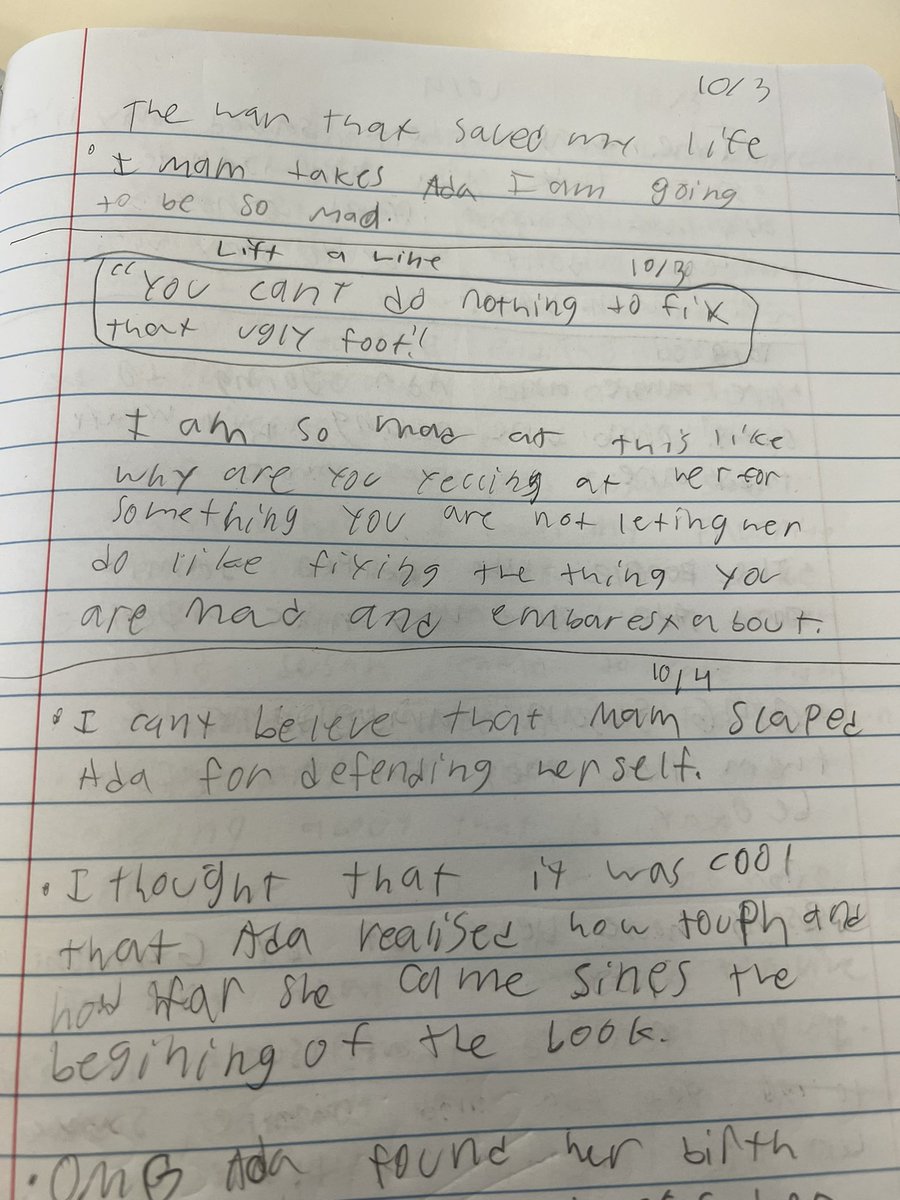 10/3
The war that saved my life
• I mam takes Ada I am going
to be so mad.
Lift a Line 10/30
"You can't do nothing to fix
that ugly foot!"
I am so mad at this like
why are you yelling at her for
something you are not leting her
do like fixing the thing you
are mad and embares about.
10/4
• I cant believe that mam slaped
Ada for defending herself.
• I thought that it was cool
that Ada realised how touph and
how far she came sines the
begining of the book.
• OMG Ada found her birth